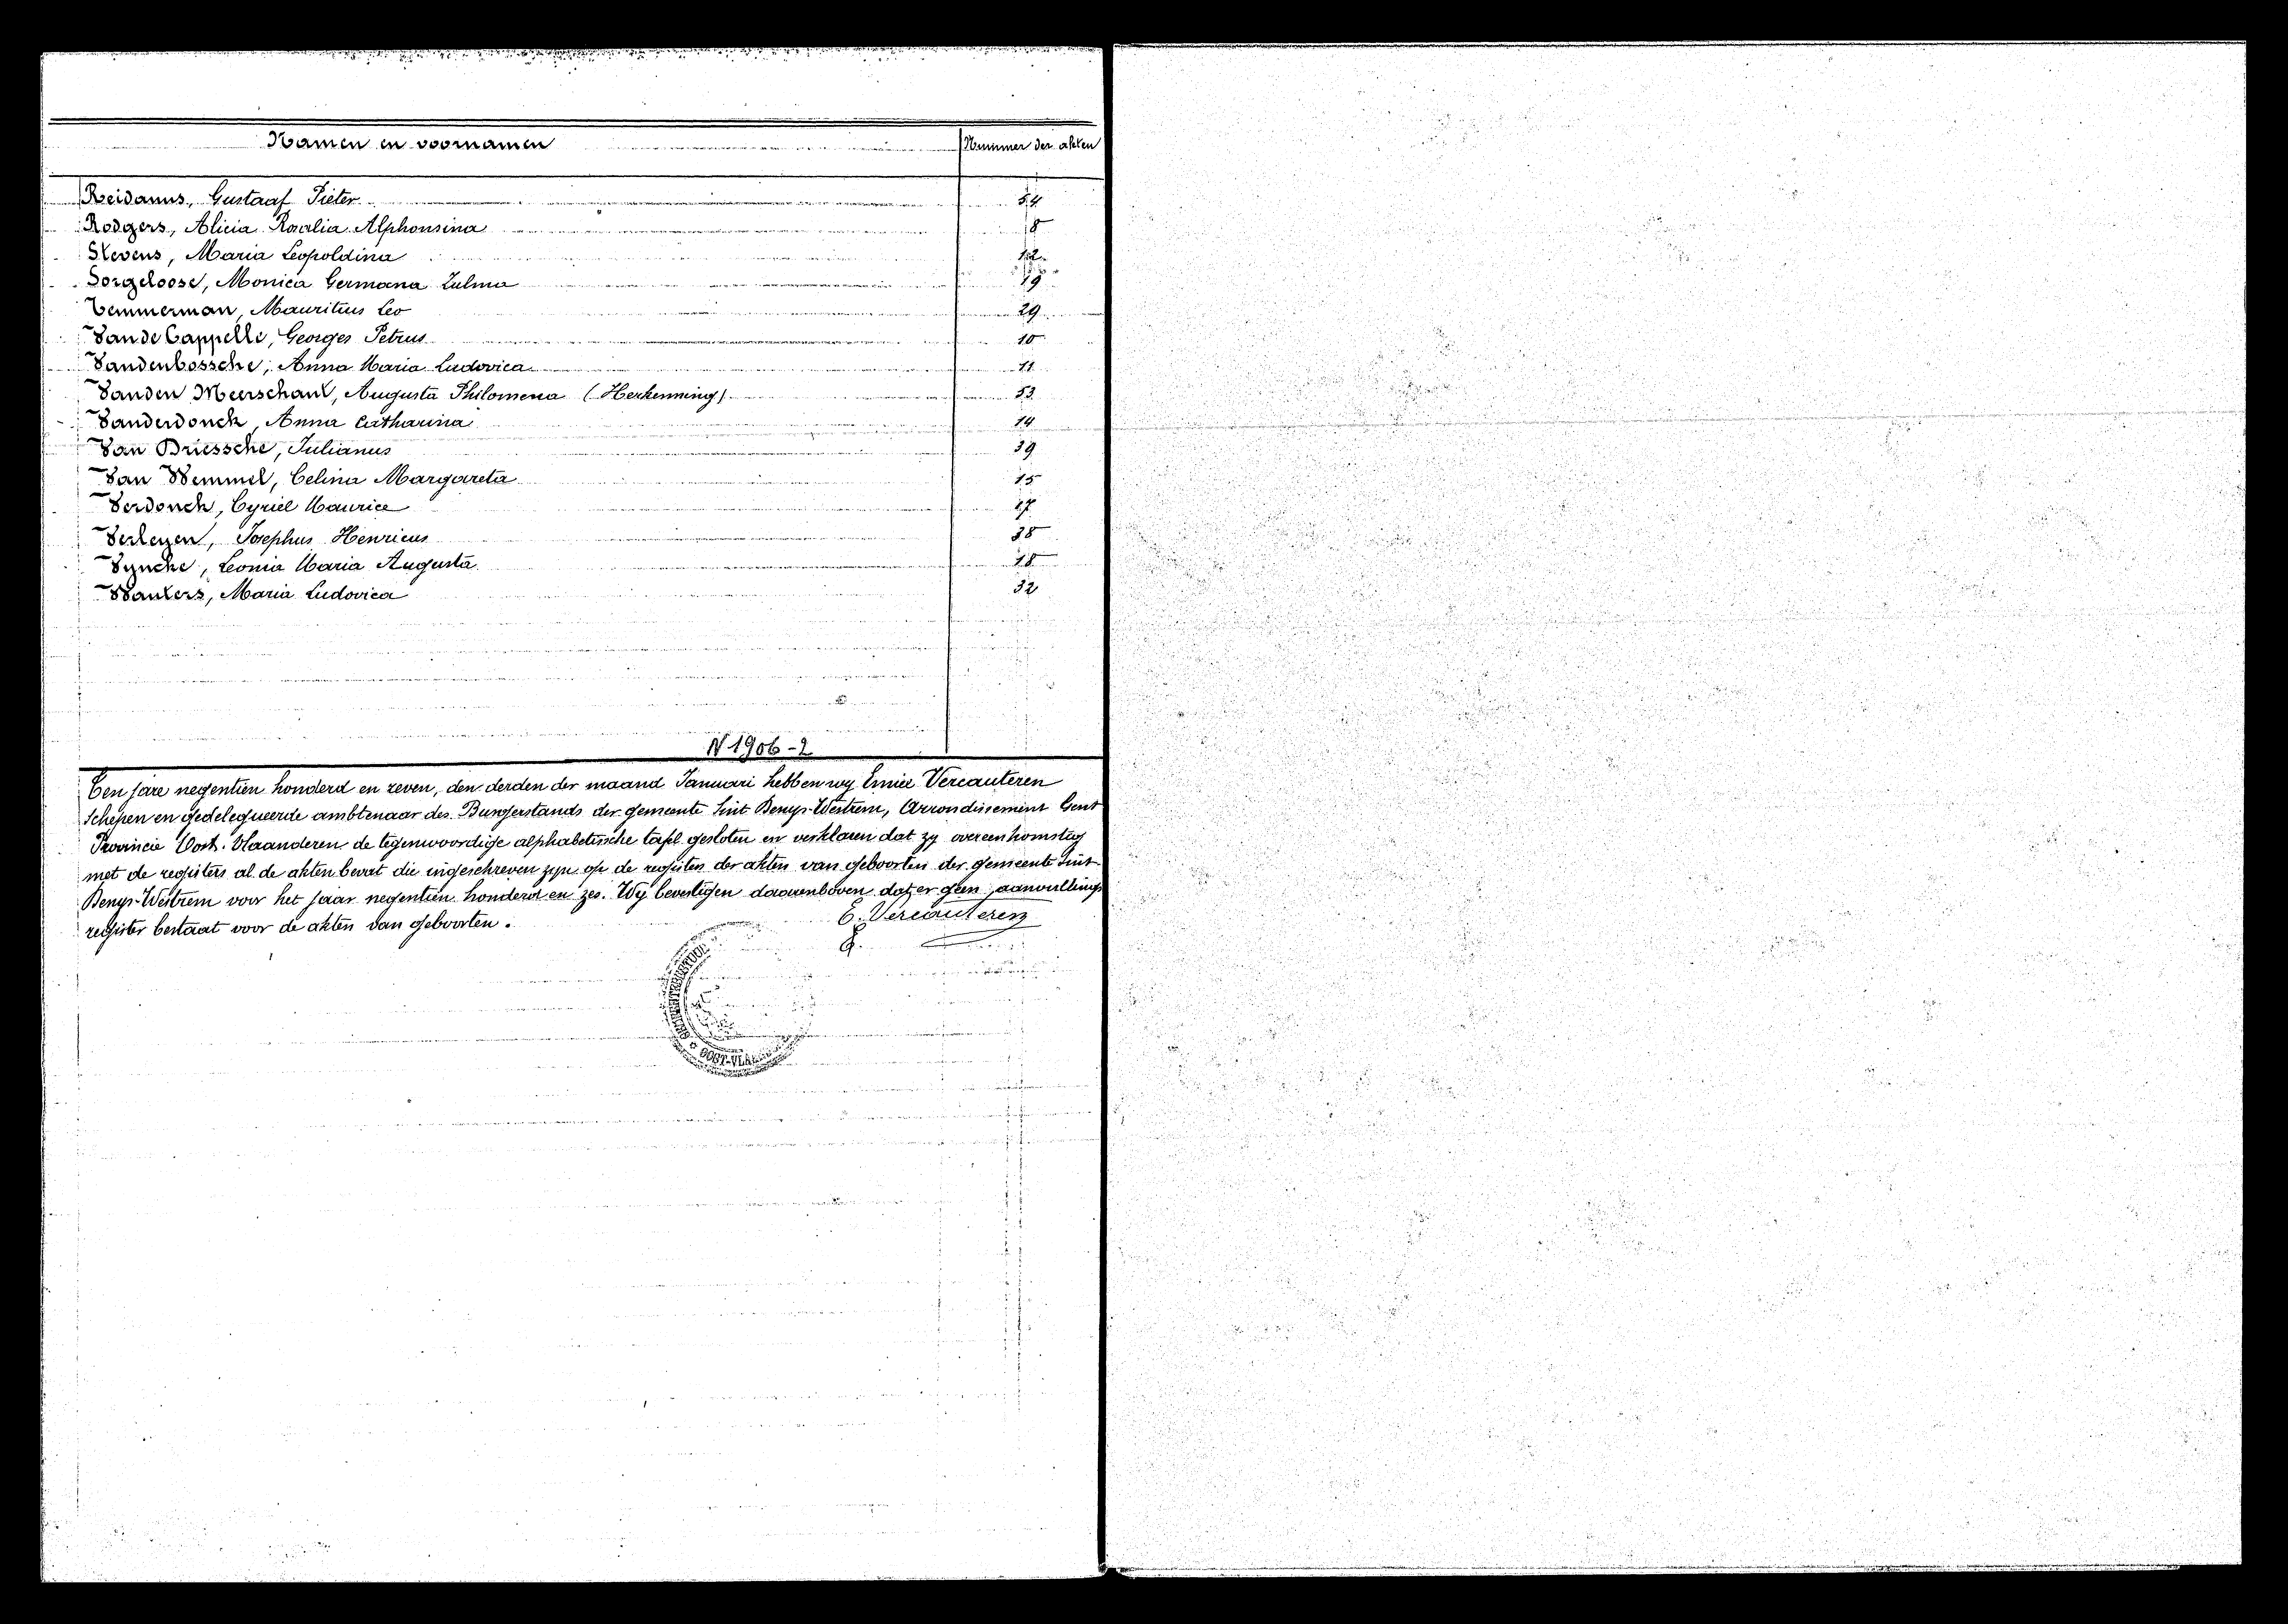 Namen en voornamen Nummer der akten
Reidanus, Gustaaf Pieter 54
Rodgers, Alicia Rosalia Alphonsina 8
Stevens, Maria Leopoldina 12
Sorgeloose, Monica Germana Zulma 19
Temmerman, Mauritius Leo 29
Van de Cappelle, Georges Petrus 10
Vandenbossche, Anna Maria Ludovica 11
Van den Meerschaut, Augusta Philomena (Herkenning) 53
Vanderdonck, Anna Catharina 14
Van Driessche, Julianus 39
Van Wemmel, Celina Margareta 15
Verdonck, Cyriel Maurice 17
Verleyen, Josephus Henricus 38
Vyncke, Leonia Maria Augusta 18
Wauters, Maria Ludovica 32
N 1906-2
Ten jare negentien honderd en zeven, den derden der maand Januari hebben wy Emiel Vercauteren
Schepen en gedelegueerde ambtenaar des Burgerstands der gemeente Sint Denys-Westrem, Arrondissement Gent
Provincie Oost-Vlaanderen de tegenwoordige alphabetische tafel gesloten en verklaren dat zy overeenkomstig
met de registers al de akten bevat die ingeschreven zyn op de registers der akten van geboorten der gemeente Sint
Denys-Westrem voor het jaar negentien honderd en zes. Wy bevestigen daarenboven dat er geen aanvullings
register bestaat voor de akten van geboorten.
E. Vercauteren
OOST-VLA